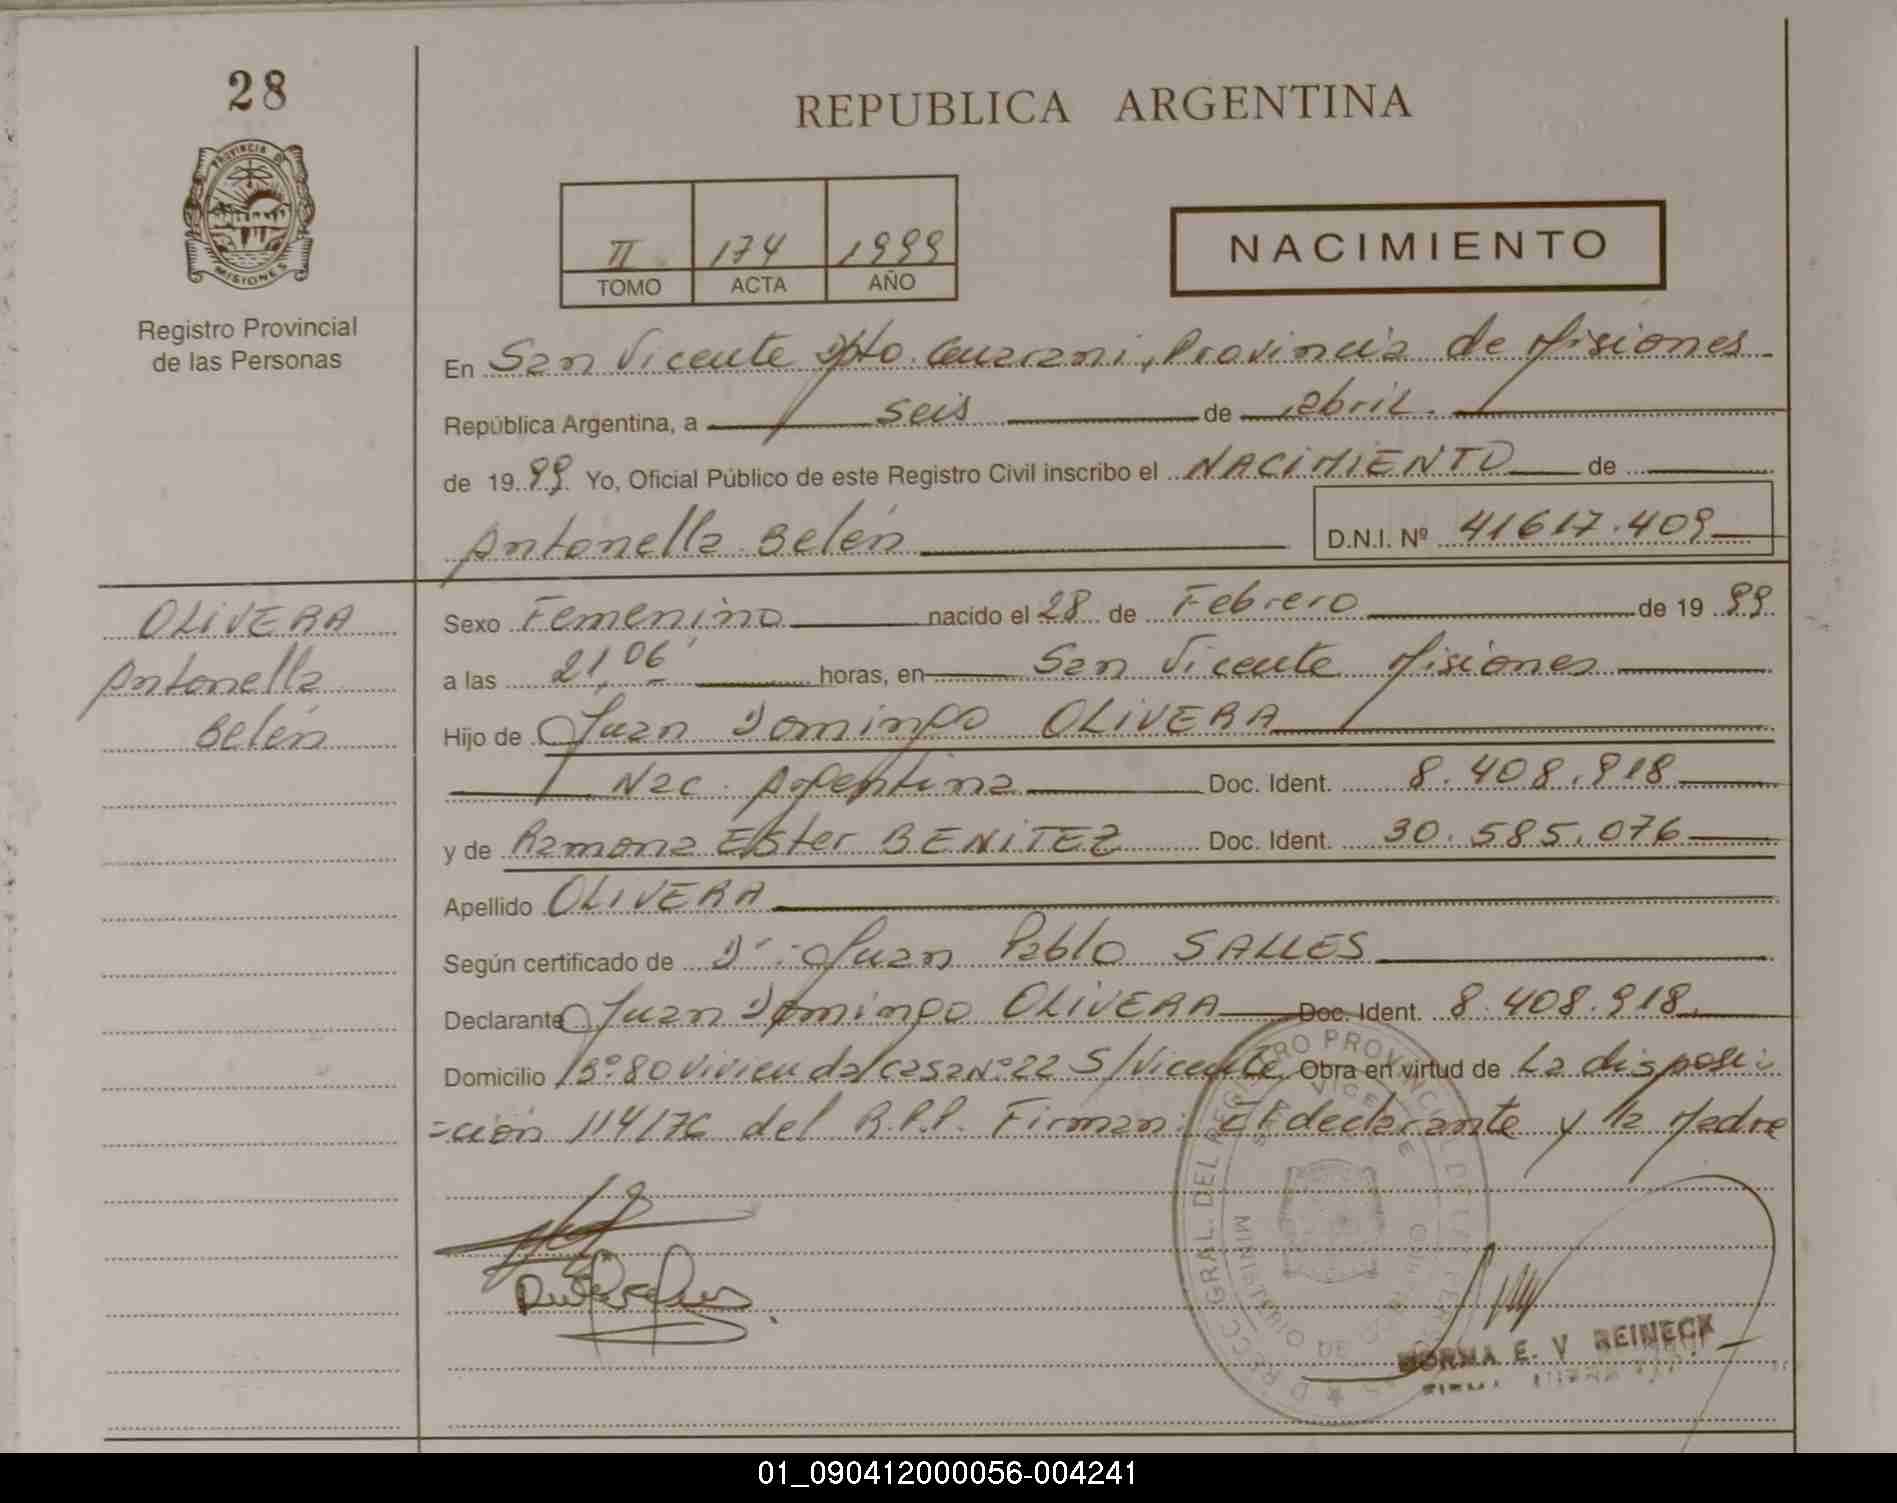 28
PROVINCIA DE
MISIONES
Registro Provincial
de las Personas
REPUBLICA ARGENTINA
II 174 1999
TOMO ACTA AÑO
NACIMIENTO
En San Vicente Dpto. Guarani, Provincia de Misiones
República Argentina, a seis de abril.
de 1999 Yo, Oficial Público de este Registro Civil inscribo el NACIMIENTO de
Antonella Belén D.N.I. Nº 41617.409
OLIVERA
Antonella
Belén
Sexo Femenino nacido el 28 de Febrero de 1999
a las 21,06 horas, en San Vicente Misiones
Hijo de Juan Domingo OLIVERA
Nac. Argentina Doc. Ident. 8.408.918
y de Ramona Ester BENITEZ Doc. Ident. 30.585.076
Apellido OLIVERA
Según certificado de Dr. Juan Pablo SALLES
Declarante Juan Domingo OLIVERA Doc. Ident. 8.408.918
Domicilio Bº 80 Vivienda Casa Nº 22 S/Vicente Obra en virtud de La disposi-
=ción 114/76 del R.P.P. Firman: El declarante y la Madre
NORMA E. V REINECK
01_090412000056-004241